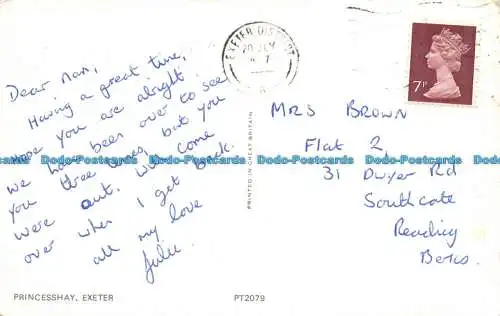 Dear Nan,
Having a great time,
hope you are alright
we have been over to see
you three times, but you
were out. Will come
over when I get back.
all my love
Julie.
PRINCESSHAY, EXETER
PT2079
PRINTED IN GREAT BRITAIN
EXETER DISTRICT
7P
MRS BROWN
Flat 2,
31 Dwyer Rd
Southcote
Reading
Berks.
Dodo-Postcards.com Dodo-Postcards.com Dodo-Postcards.com Dodo-Postcards.com